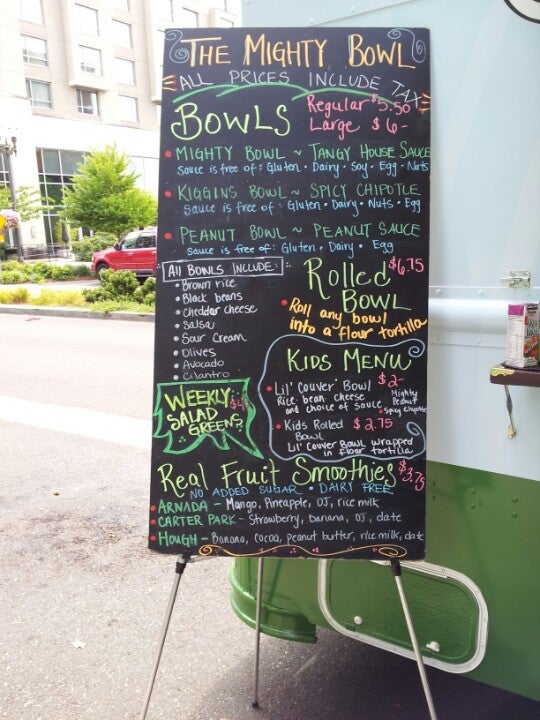 THE MIGHTY BOWL
ALL PRICES INCLUDE TAX
BOWLS
Regular $5.50
Large $6-
• MIGHTY BOWL ~ TANGY HOUSE SAUCE
Sauce is free of: Gluten • Dairy • Soy • Egg • Nuts
• KIGGINS BOWL ~ SPICY CHIPOTLE
Sauce is free of: Gluten • Dairy • Nuts • Egg
• PEANUT BOWL ~ PEANUT SAUCE
Sauce is free of: Gluten • Dairy • Egg
All BOWLS INCLUDE:
• Brown rice
• Black beans
• Cheddar cheese
• Salsa
• Sour Cream
• Olives
• Avocado
• Cilantro
Rolled $6.75
BOWL
• Roll any bowl
into a flour tortilla
KIDS MENU
• Lil' Couver Bowl $2-
Rice, bean, cheese
and choice of sauce
Mighty
Peanut
• Spicy Chipotle
• Kids Rolled $2.75
Bowl
Lil' Couver Bowl wrapped
in flour tortilla
WEEKLY
SALAD $4
GREENS?
Real Fruit Smoothies $3.75
NO ADDED SUGAR • DAIRY FREE
• ARNADA - Mango, Pineapple, OJ, rice milk
• CARTER PARK - Strawberry, banana, OJ, date
• HOUGH - Banana, cocoa, peanut butter, rice milk, date